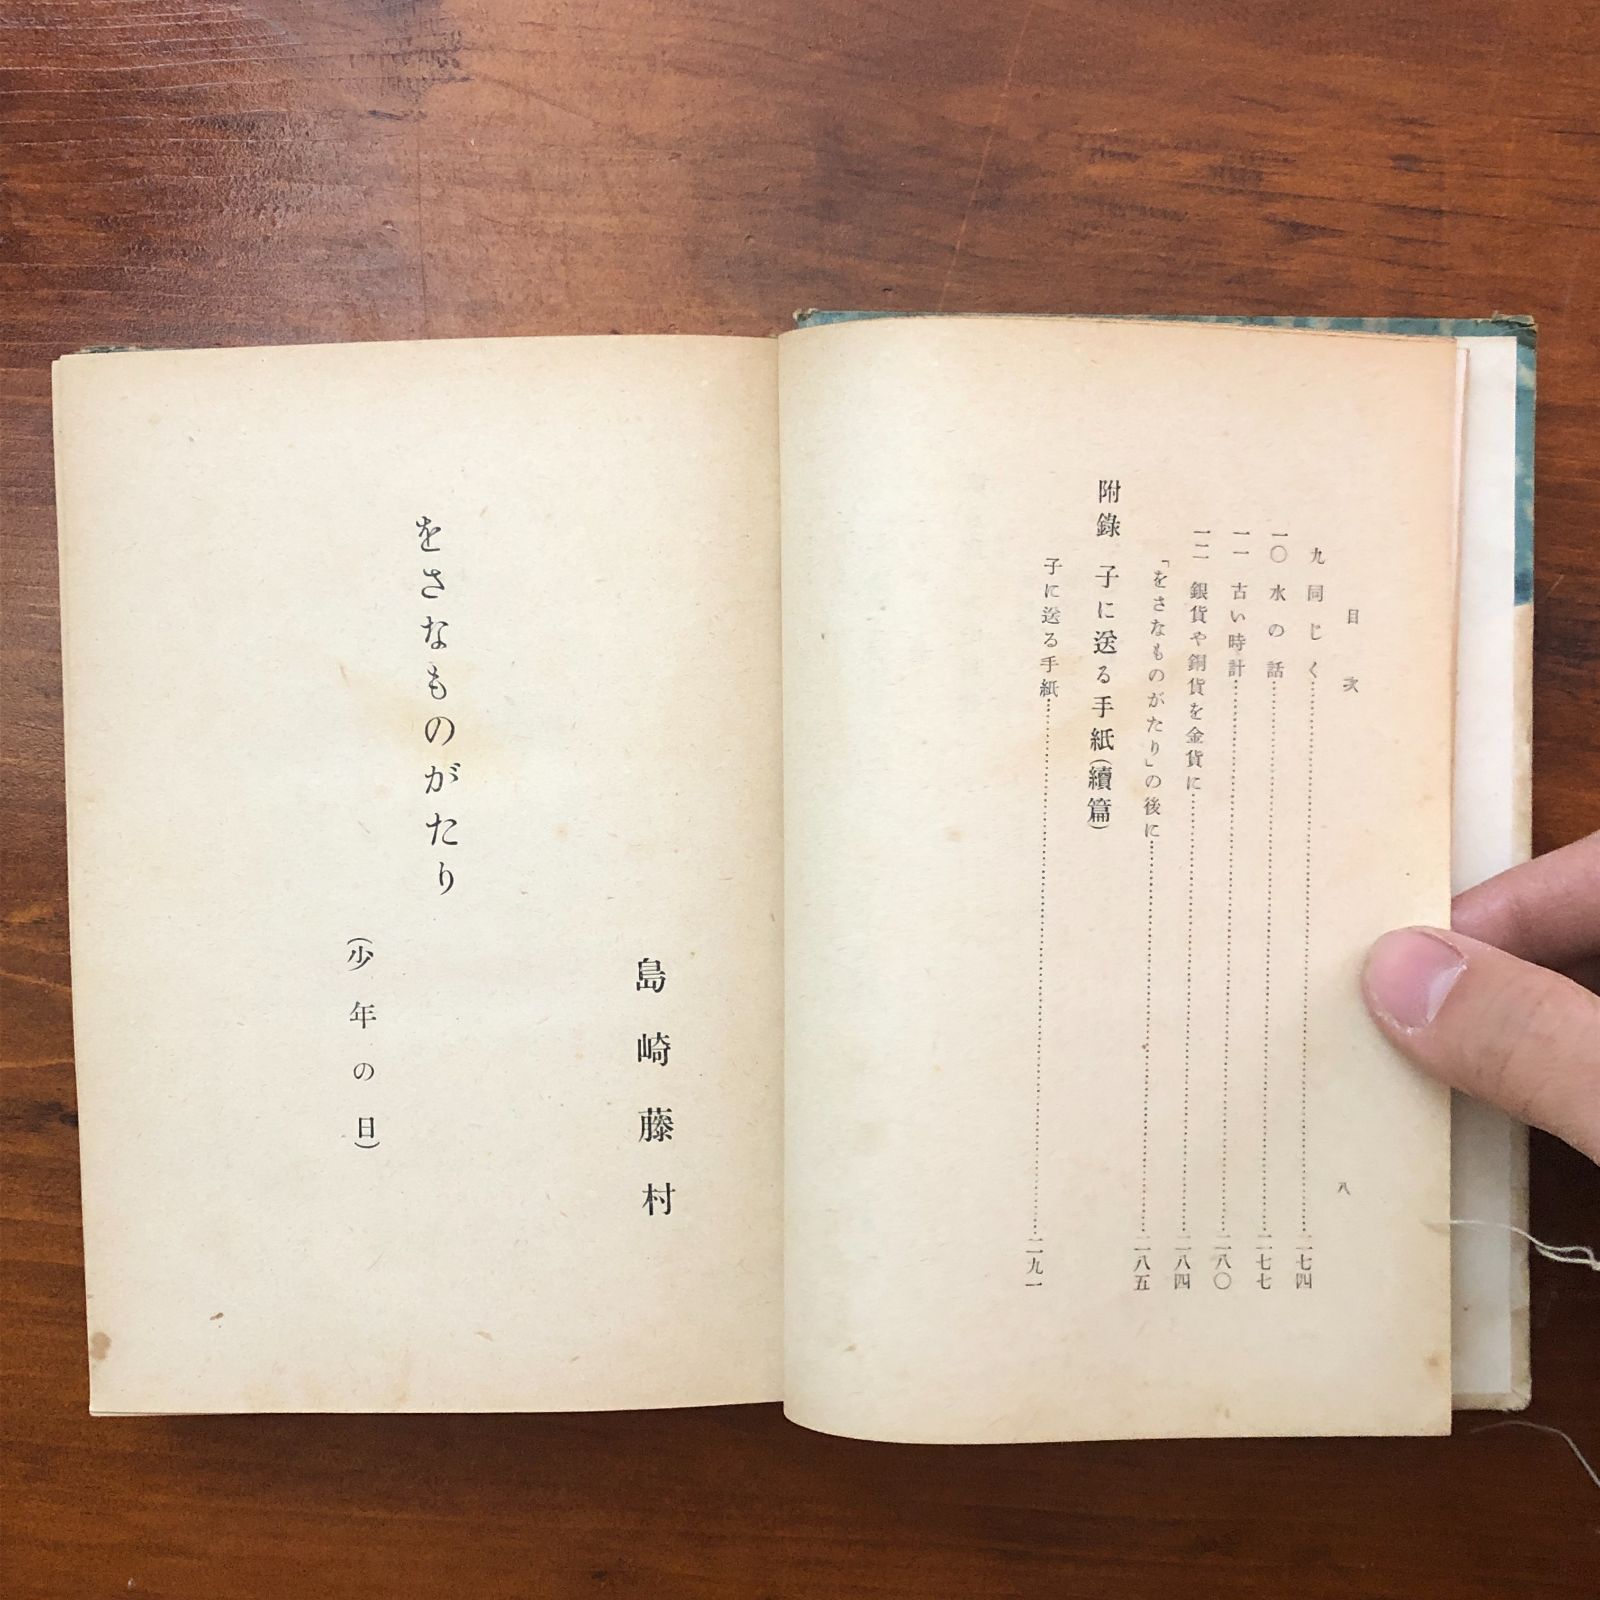 目次
八
九 同じく……二七四
一〇 水の話……二七七
一一 古い時計……二八〇
一二 銀貨や銅貨を金貨に……二八四
「をさなものがたり」の後に……二八五
附錄 子に送る手紙(續篇)
子に送る手紙……二九一
島崎藤村
をさなものがたり
(少年の日)